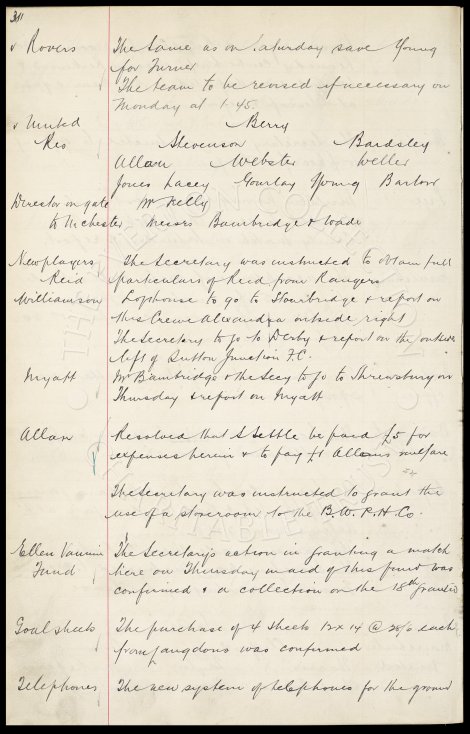 311
v Rovers The same as on Saturday save Young
for Turner
The team to be revised if necessary on
Monday at 1.45.
v United Berry
Res Stevenson Bardsley
Allan Webster Weller
Jones Lacey Gourlay Young Barlow
Director on gate Mr Kelly
to Mchester Messrs Bainbridge & Wade
New players The Secretary was instructed to obtain full
Reid particulars of Reid from Rangers
Williamson Lofthouse to go to Stourbridge & report on
this Crewe Alexandra outside right
The Secretary to go to Derby & report on the outside
left of Sutton Junction F.C.
Myatt Mr Bainbridge & the Secy to go to Shrewsbury on
Thursday & report on Myatt
Allan Resolved that S Settle be paid £5 for
expenses herein & to pay £1 Allans welfare
The Secretary was instructed to grant the
use of a storeroom to the B. W. P. H. Co.
Ellen Vannin The Secretary's action in granting a match
Fund here on Thursday in aid of this fund was
confirmed & a collection on the 18th granted
Goal sheets The purchase of 4 sheets 12 x 14 @ 25/6 each
from Langdons was confirmed
Telephones The new system of telephones for the ground